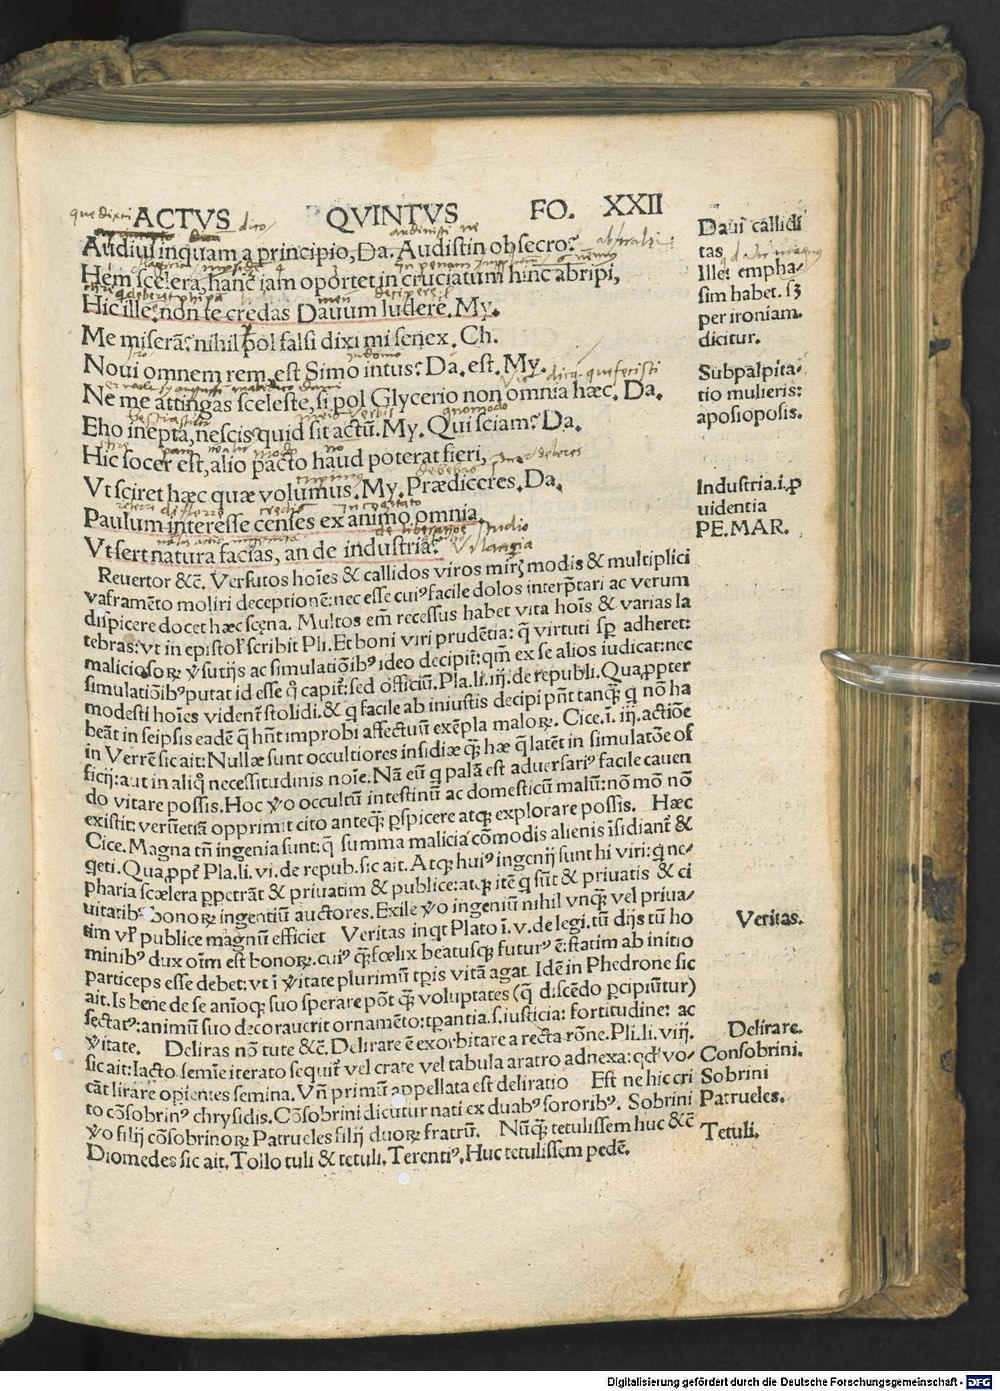 ACTVS QVINTVS FO. XXII
Audiui inquam a principio, Da. Audistin obsecro?
Hem scelera, hanc iam oportet in cruciatum hinc abripi,
Hic ille: non te credas Dauum ludere. My.
Me miserā: nihil pol falsi dixi mi senex. Ch.
Noui omnem rem, est Simo intus? Da. est. My.
Ne me attingas sceleste, si pol Glycerio non omnia hæc. Da.
Eho inepta, nescis quid sit actū. My. Qui sciam? Da.
Hic socer est, alio pacto haud poterat fieri,
Vt sciret hæc quæ volumus. My. Prædiceres. Da.
Paulum interesse censes ex animo omnia,
Vt fert natura facias, an de industria?
Daui callidi
tas
Ille: empha-
sim habet. sʒ
per ironiam.
dicitur.
Subpalpita-
tio mulieris:
aposioposis.
Industria.i.ꝓ
uidentia
PE. MAR.
Reuertor &c̄. Versutos hoīes & callidos viros mirꝭ modis & multiplici
vaframēto moliri deceptionē: nec esse cuiꝰ facile dolos interp̄tari ac verum
dispicere docet hæc scęna. Multos em̄ recessus habet vita hoīs & varias la
tebras: vt in epistoł scribit Pli. Et boni viri prudētia: q̄ virtuti sp̄ adheret:
maliciosoꝝ v̓sutijs ac simulatiōibꝰ ideo decipit̄: qm̄ ex se alios iudicat: nec
simulatiōibꝰ putat id esse q̄ capit̄: sed officiū. Pla. li. iij. de republi. Quaꝓpter
modesti hoīes vident̄ stolidi. & q facile ab iniustis decipi pn̄t tanqꝫ q nō ha
beāt in seipsis eadē q̄ hn̄t improbi affectuū exēpla maloꝝ. Cice. ī. iij. actiōe
in Verrē sic ait: Nullæ sunt occultiores insidiæ qꝫ hæ q̄ latēt in simulatōe of
ficij: aut in aliq̄ necessitudinis noīe. Nā eū q palā est aduersariꝰ facile cauen
do vitare possis. Hoc v̓o occultū intestinū ac domesticū malū: nō mō nō
existit: verūetiā opprimit cito anteqꝫ ꝑspicere atqꝫ explorare possis. Hæc
Cice. Magna tn̄ ingenia sunt: q̄ summa malicia cōmodis alienis īsidiant̄ &
geti. Quaꝓpt̄ Pla. li. vi. de repub. sic ait. Atqꝫ huiꝰ ingenij sunt hi viri: q ne-
pharia scælera ꝑpetrāt & priuatim & publice: atqꝫ itē q sūt & priuatis & ci
uitatibꝰ bonoꝝ ingentiū auctores. Exile v̓o ingeniū nihil vnqꝫ vel priua-
tim vł publice magnū efficiet Veritas inqt Plato ī. v. de legi. tū dijs tū ho
minibꝰ dux oīm est bonoꝝ. cuiꝰ qꝫ fœlix beatusqꝫ futurꝰ ē: statim ab initio
particeps esse debet: vt ī v̓itate plurimū tp̄is vitā agat. Idē in Phedrone sic
ait. Is bene de se anīoqꝫ suo sperare pōt qꝫ voluptates (q̄ discēdo ꝑcipiūtur)
sectatꝰ: animū suo decorauerit ornamēto: tꝑantia. s. iusticia: fortitudine: ac
v̓itate. Deliras nō tute &c̄. Delirare ē exorbitare a recta rōne. Pli. li. viij.
sic ait: Iacto semīe iterato sequit̄ vel crate vel tabula aratro adnexa: qd̓ vo-
cāt lirare opientes semina. Vn̄ primū appellata est deliratio Est ne hic cri
to cōsobrinꝰ chrysidis. Cōsobrini dicūtur nati ex duabꝰ sororibꝰ. Sobrini
v̓o filij cōsobrinoꝝ Patrueles filij duoꝝ fratrū. Nūqꝫ tetulissem huc &c̄
Diomedes sic ait. Tollo tuli & tetuli. Terentiꝰ. Huc tetulissem pedē.
Veritas.
Delirare.
Consobrini.
Sobrini
Patrueles.
Tetuli.
Digitalisierung gefördert durch die Deutsche Forschungsgemeinschaft - DFG